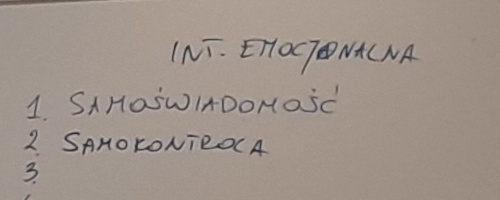 INT. EMOCJONALNA
1. SAMOŚWIADOMOŚĆ
2. SAMOKONTROLA
3.